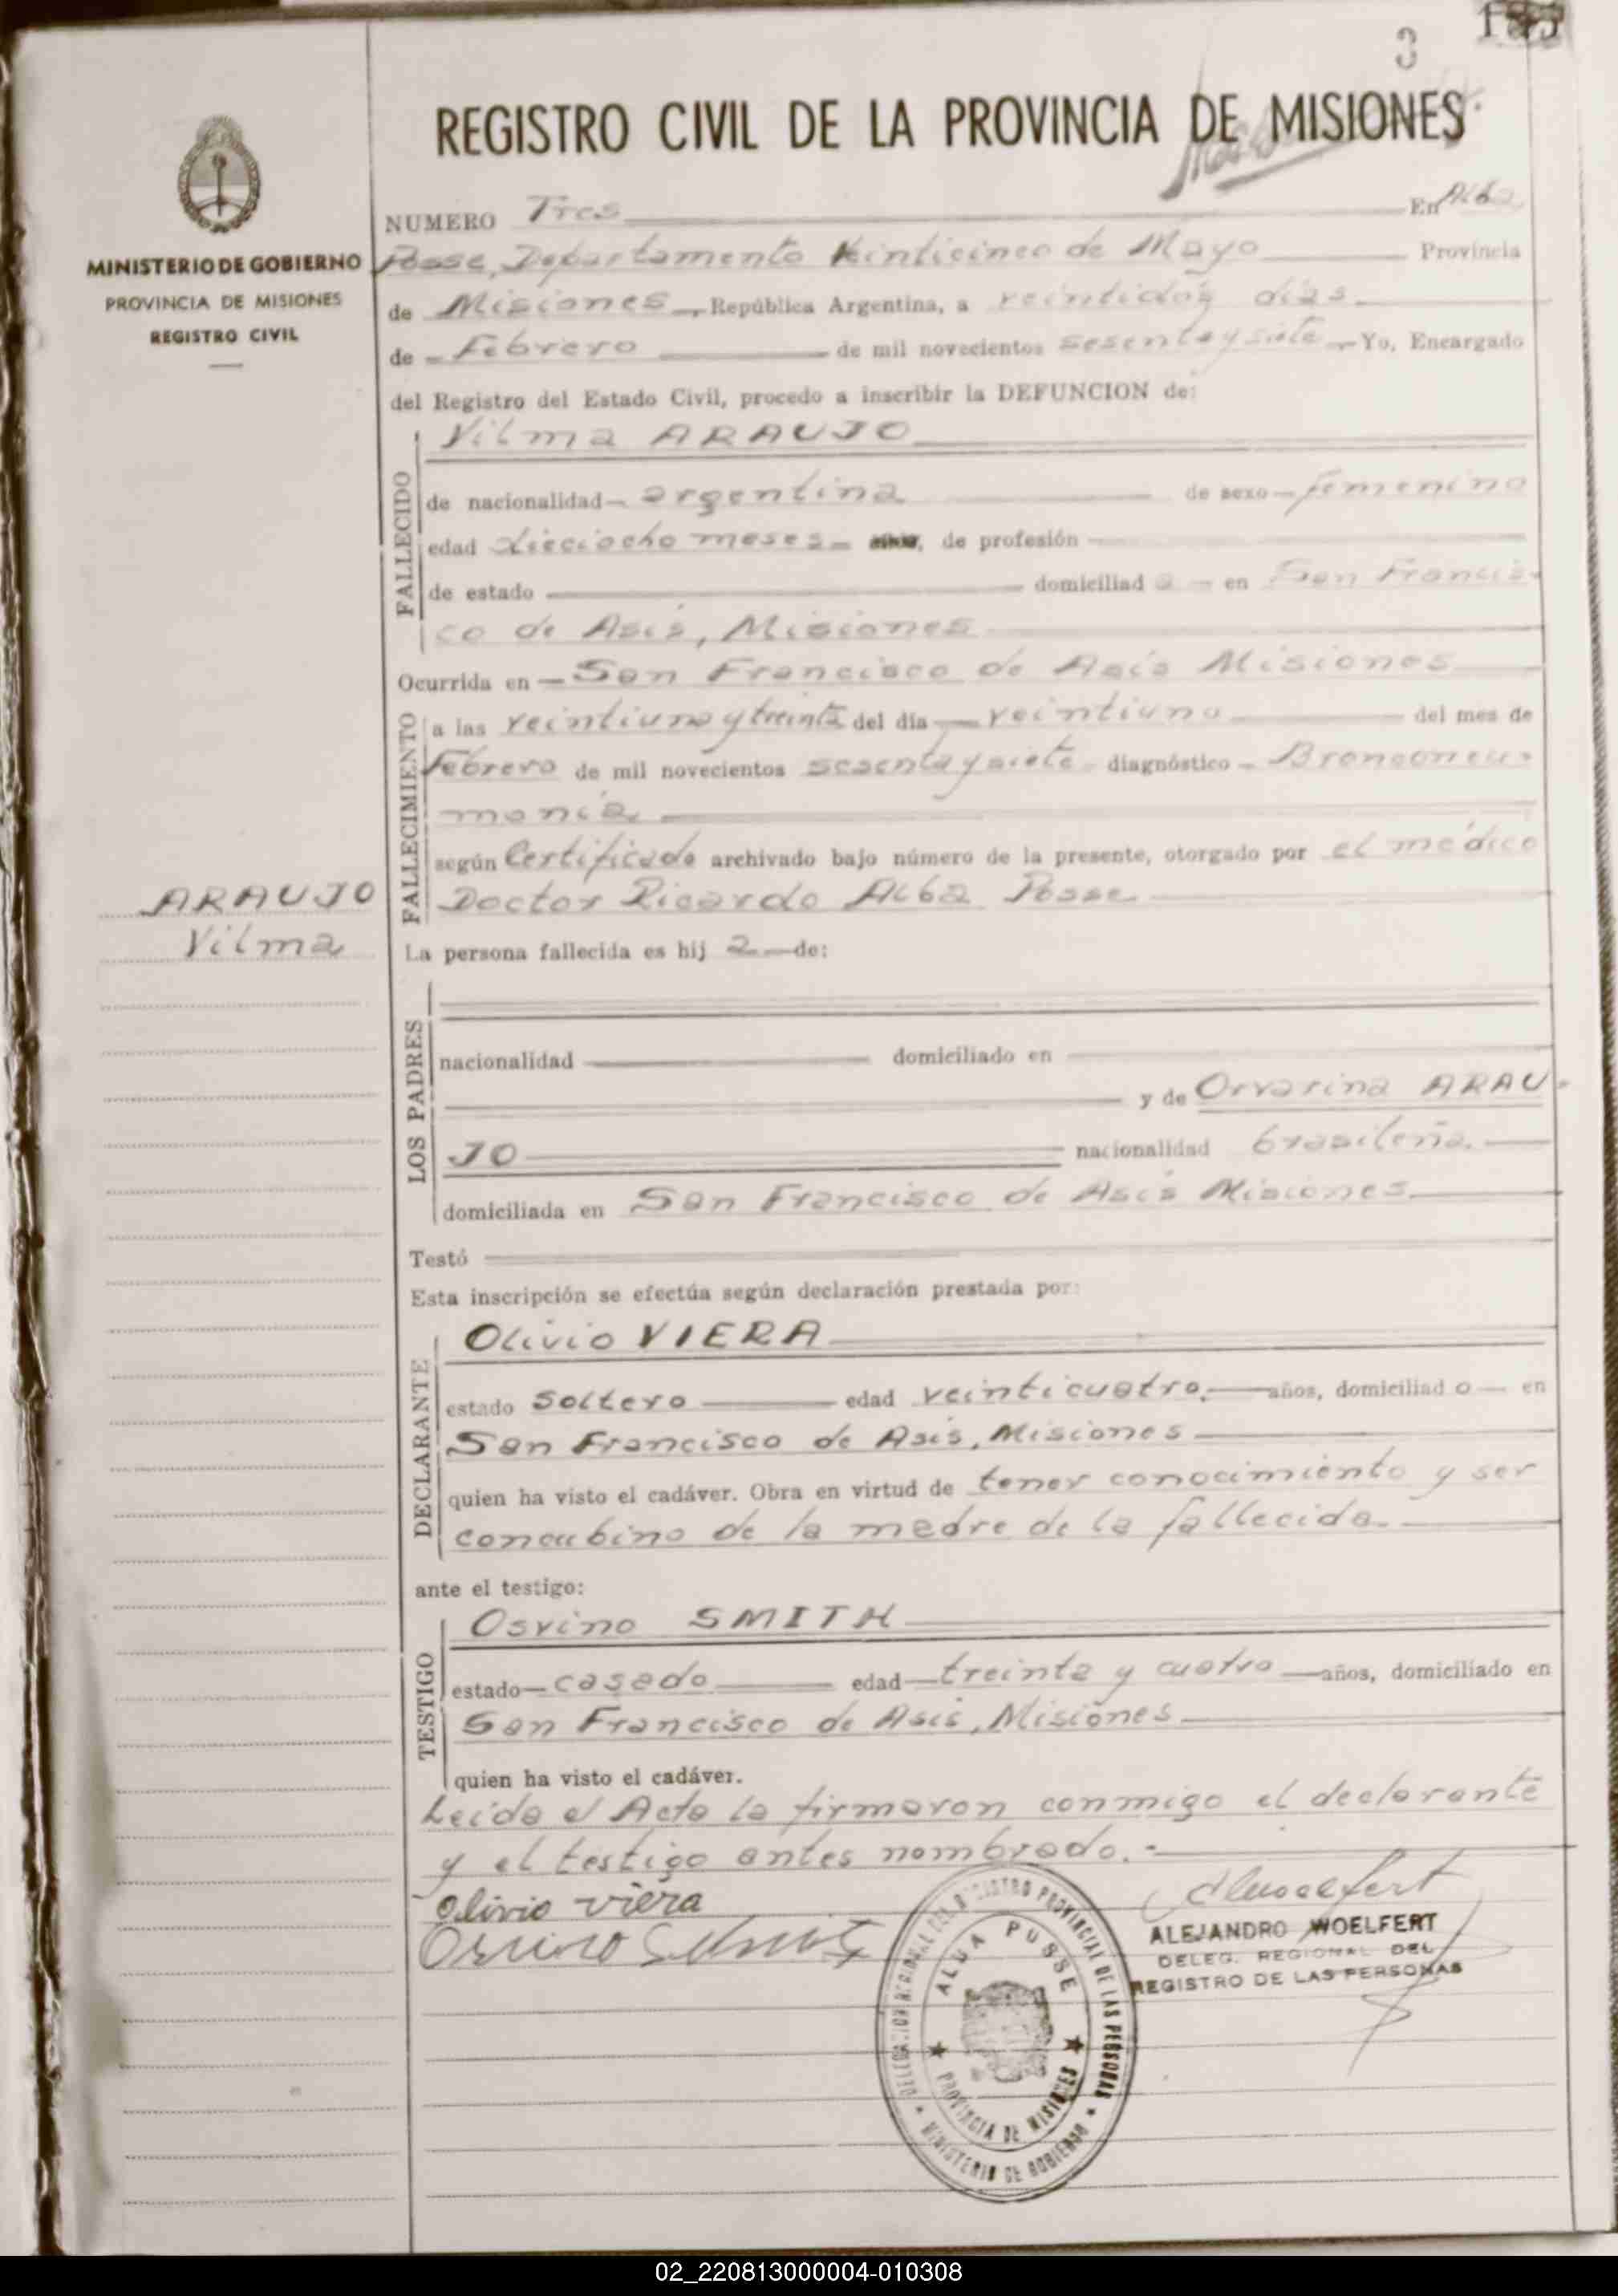 3
REGISTRO CIVIL DE LA PROVINCIA DE MISIONES
MINISTERIO DE GOBIERNO
PROVINCIA DE MISIONES
REGISTRO CIVIL
NUMERO Tres En Alba
Posse, Departamento Veinticinco de Mayo Provincia
de Misiones, República Argentina, a veintidos días
de Febrero de mil novecientos sesenta y siete Yo, Encargado
del Registro del Estado Civil, procedo a inscribir la DEFUNCION de:
FALLECIDO
Vilma ARAUJO
de nacionalidad argentina de sexo femenino
edad dieciocho meses años, de profesión
de estado domiciliad a en San Francis-
co de Asís, Misiones
Ocurrida en San Francisco de Asís Misiones
FALLECIMIENTO
a las veintiuna y treinta del día veintiuno del mes de
Febrero de mil novecientos sesenta y siete diagnóstico Bronconeu-
monía
según Certificado archivado bajo número de la presente, otorgado por el médico
Doctor Ricardo Alba Posse
ARAUJO
Vilma
La persona fallecida es hij a de:
LOS PADRES
nacionalidad domiciliado en
y de Orvarina ARAU-
JO nacionalidad brasileña.
domiciliada en San Francisco de Asís Misiones
Testó
Esta inscripción se efectúa según declaración prestada por:
DECLARANTE
Olivio VIERA
estado Soltero edad veinticuatro. años, domiciliad o en
San Francisco de Asís, Misiones
quien ha visto el cadáver. Obra en virtud de tener conocimiento y ser
concubino de la madre de la fallecida.
ante el testigo:
TESTIGO
Osvino SMITH
estado casado edad treinta y cuatro años, domiciliado en
San Francisco de Asís, Misiones
quien ha visto el cadáver.
Leída el Acta la firmaron conmigo el declarante
y el testigo antes nombrado.-
olivio viera
Osvino
ALEJANDRO WOELFERT
DELEG. REGIONAL DEL
REGISTRO DE LAS PERSONAS
DELEGACION REGIONAL DEL REGISTRO PROVINCIAL DE LAS PERSONAS
ALBA POSSE
PROVINCIA DE MISIONES
MINISTERIO DE GOBIERNO
02_220813000004-010308